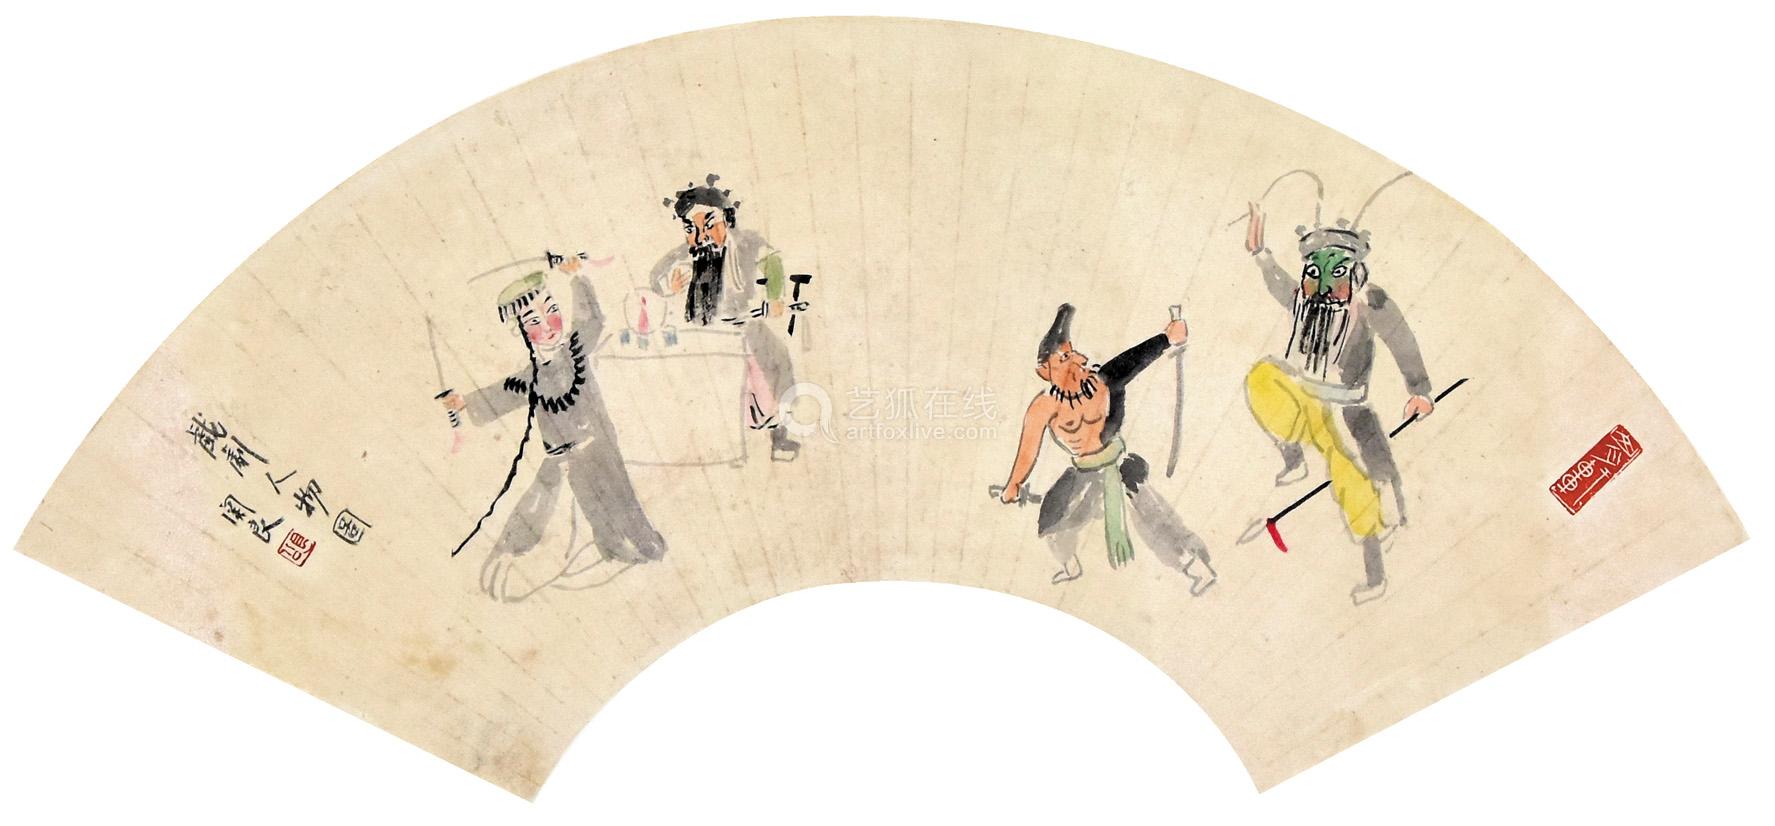 戲劇人物圖
関良
艺狐在线
artfoxlive.com